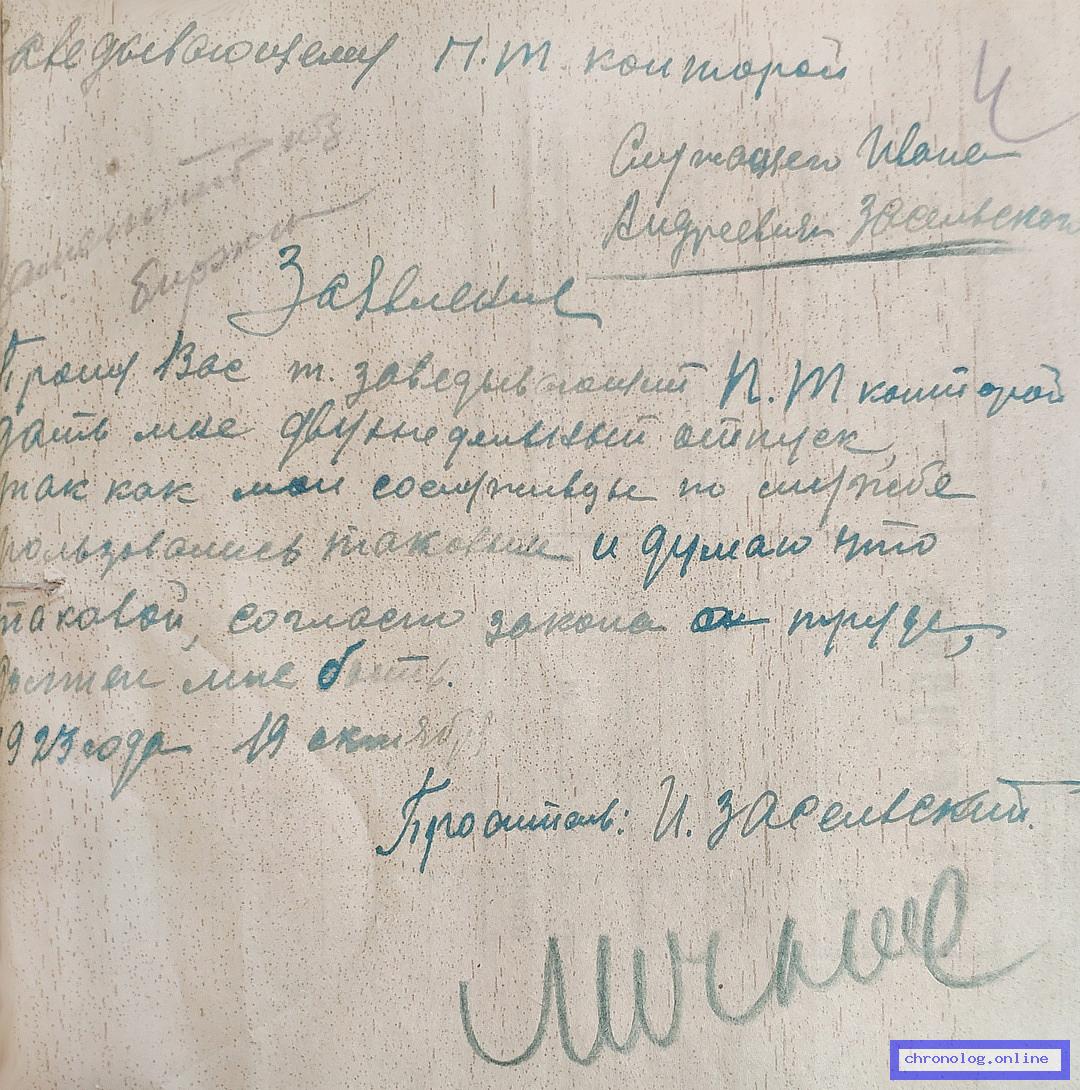 Заведывающему П.Т конторой
4
Служащего Ивана
Андреевича Засельского
заменить из
биржи
Заявление
Прошу Вас т. заведывающий П.Т конторой
дать мне двухнедельный отпуск,
так как мои сослуживцы по службе
пользовались таковым и думаю что
таковой, согласно закона о труде,
должен мне быть.
1923 года 19 октября
Проситель: И. Засельский.
chronolog.online